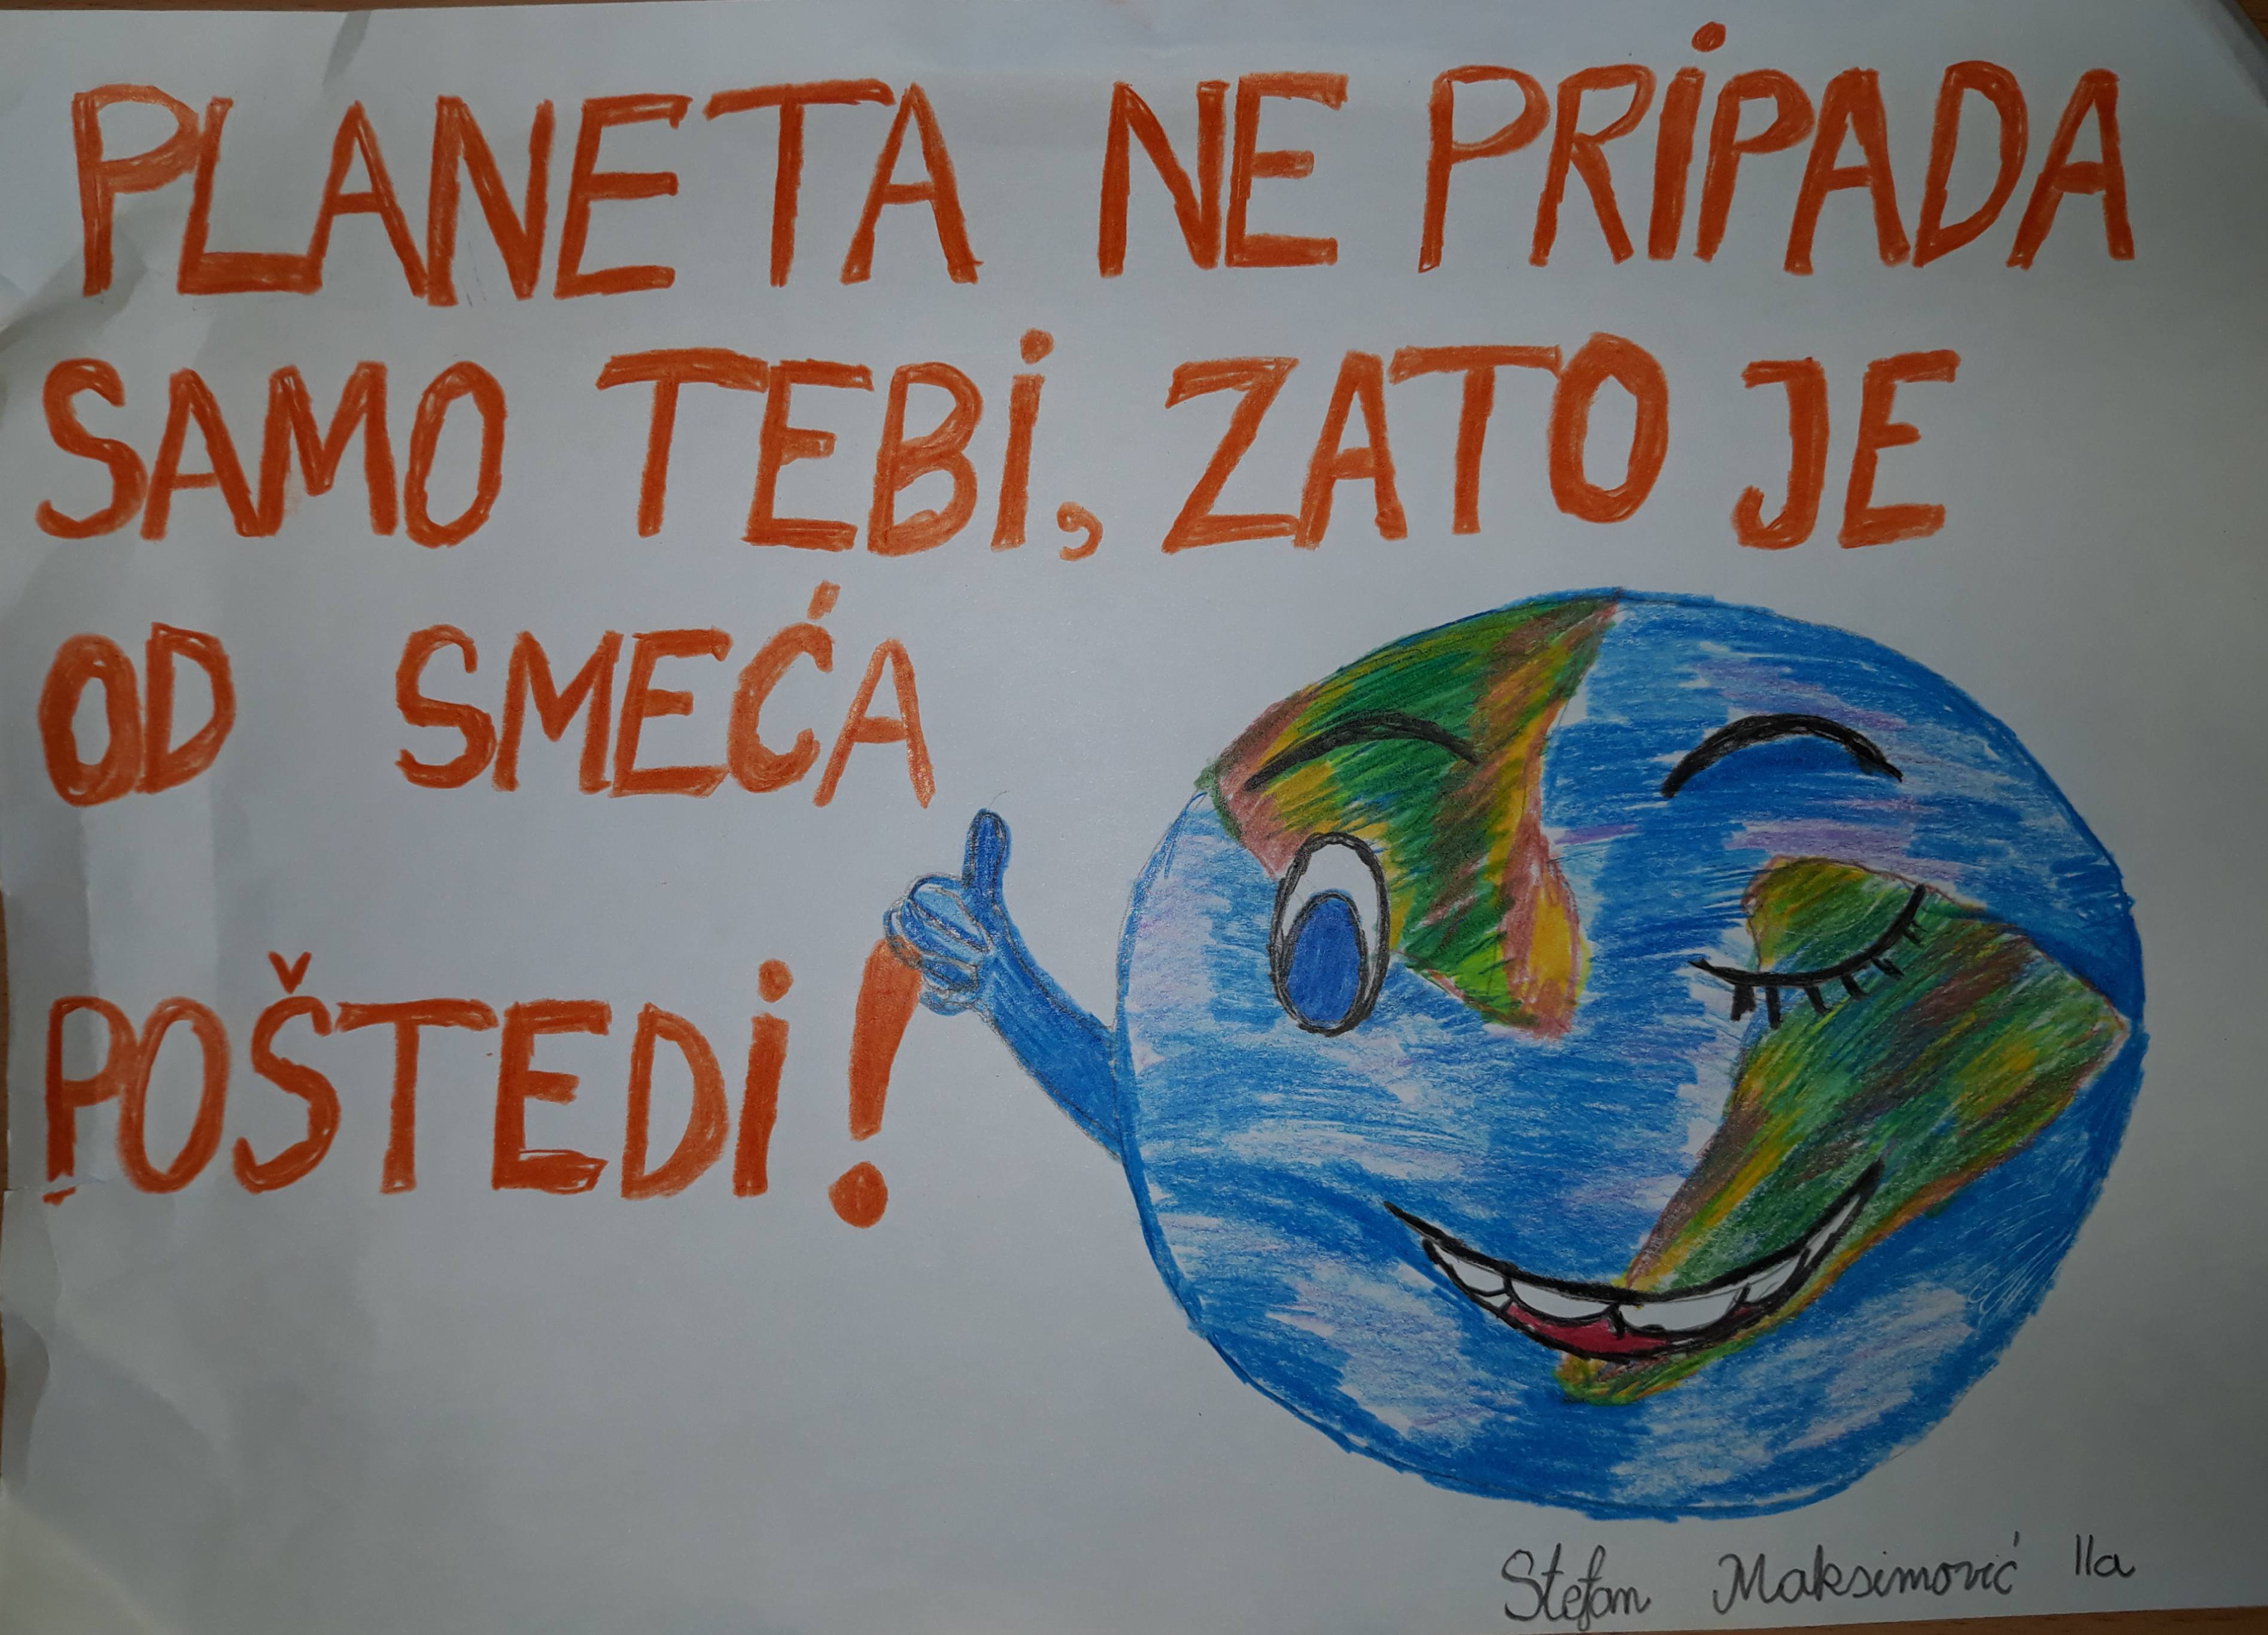 PLANETA NE PRIPADA
SAMO TEBI, ZATO JE
OD SMEĆA
POŠTEDI!
Stefan Maksimović IIa